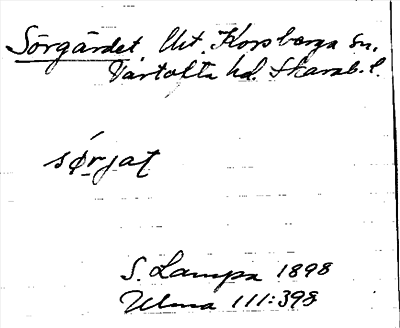 Sörgärdet. Ut. Korsberga sn.
Vartofta hd. Skarab. l.
sørjat
S. Lampa 1898
Ulma 111:398